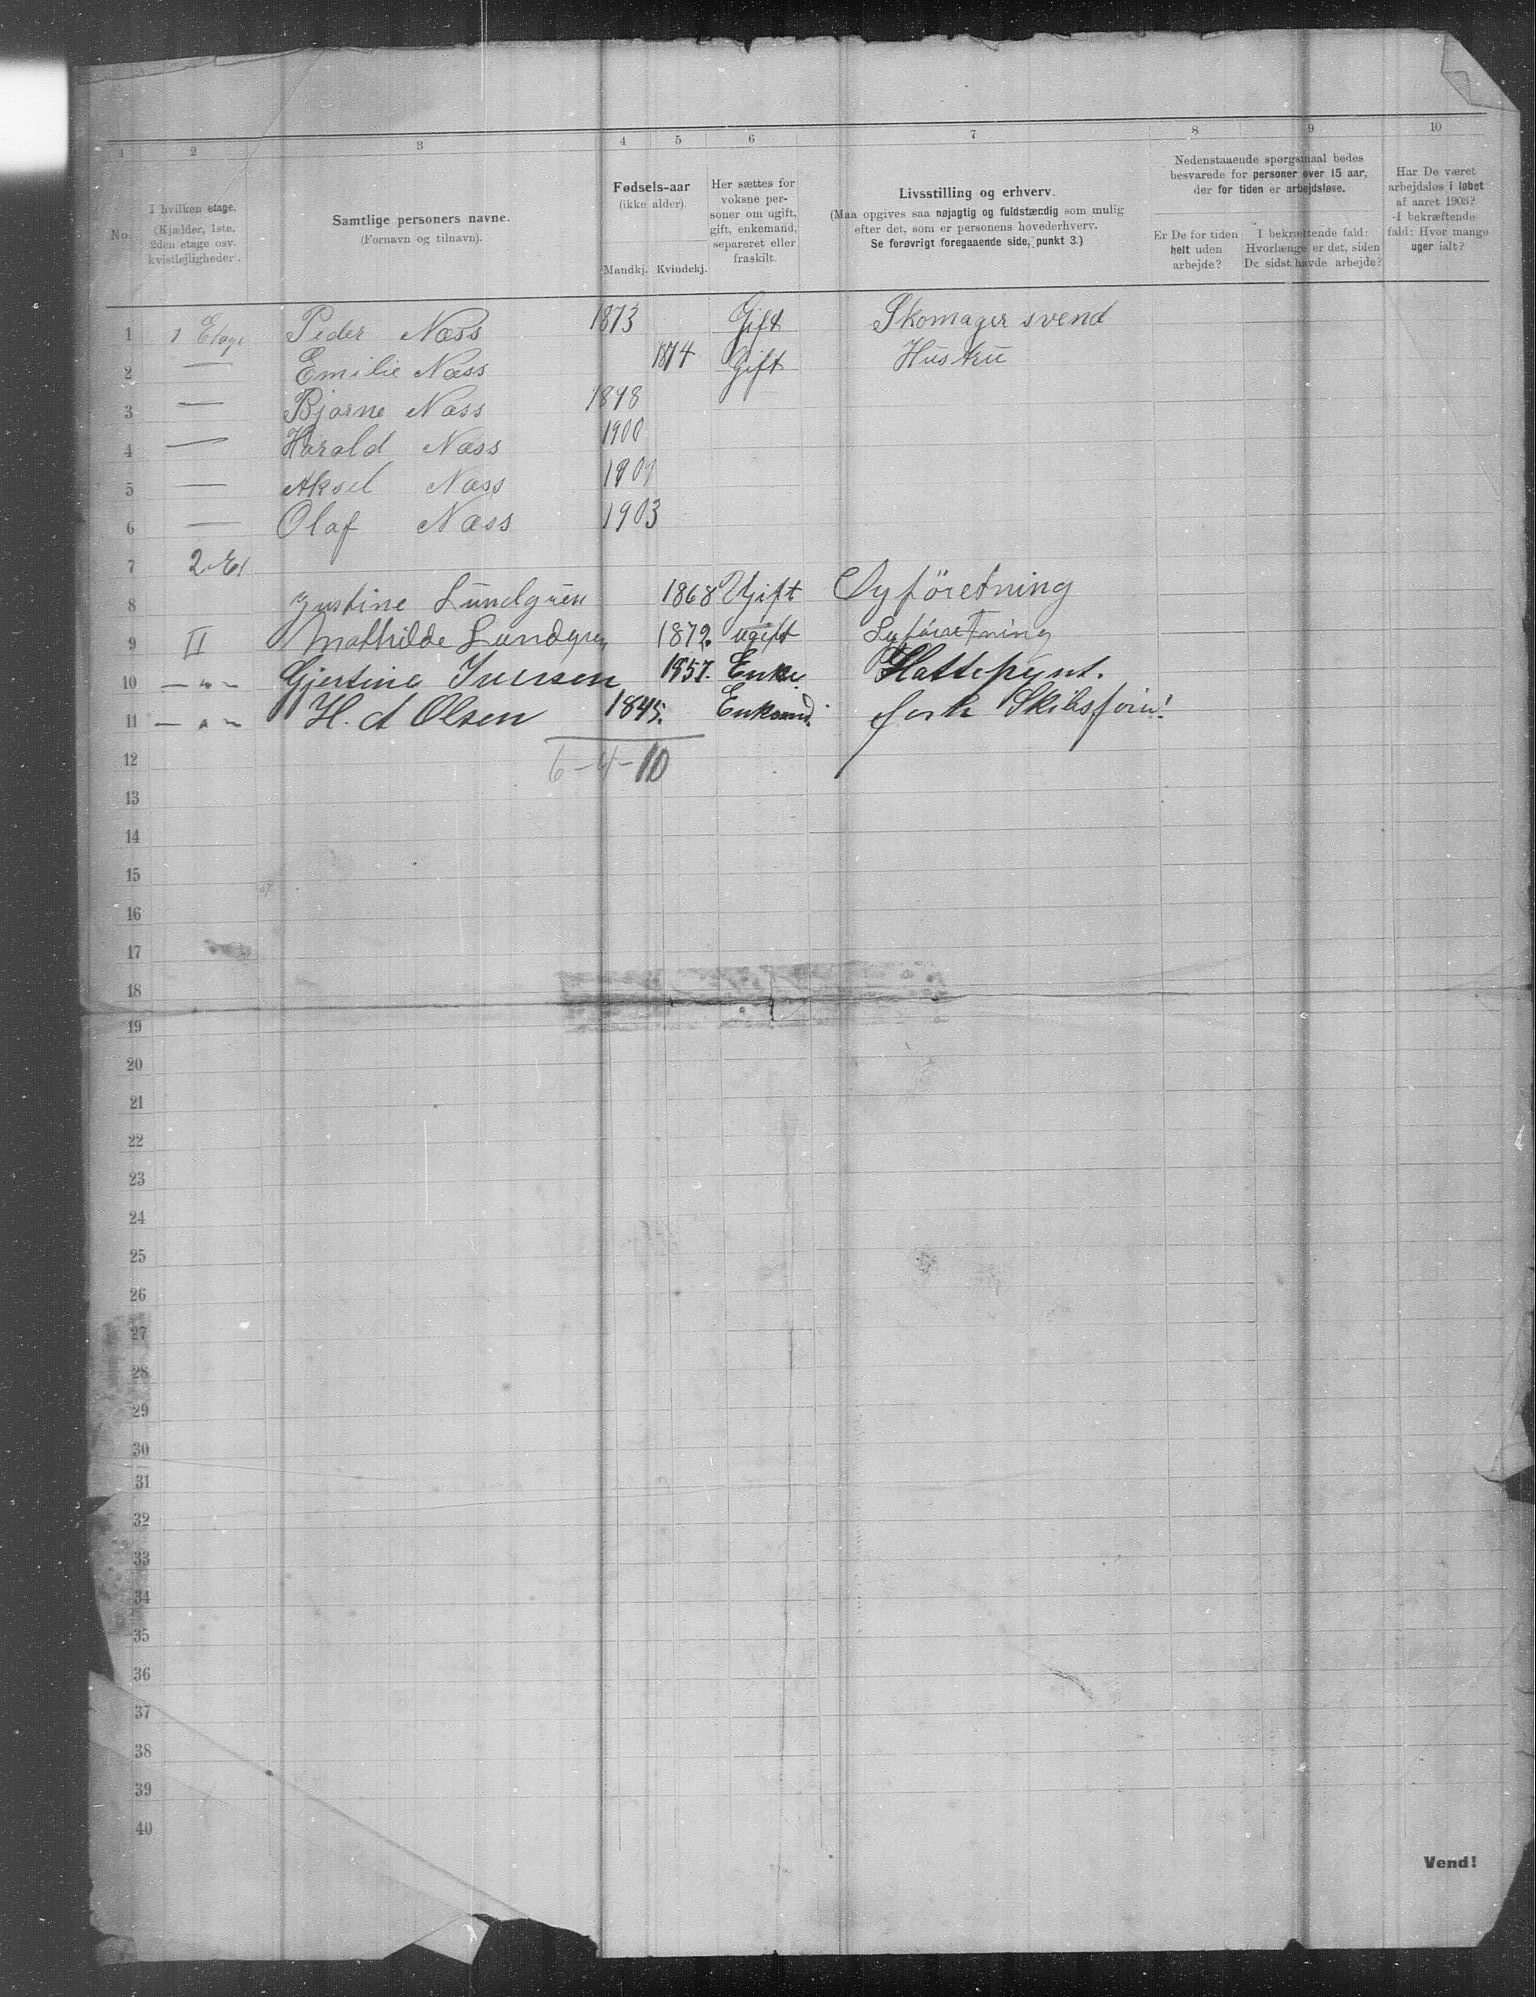 1 2 3 4 5 6 7 8 9 10
No.
I hvilken etage.
(Kjælder, 1ste,
2den etage osv.
kvistlejligheder).
Samtlige personers navne.
(Fornavn og tilnavn).
Fødsels-aar
(ikke alder).
Mandkj. Kvindekj.
Her sættes for
voksne per-
soner om ugift,
gift, enkemand,
separeret eller
fraskilt.
Livsstilling og erhverv.
(Maa opgives saa nøjagtig og fuldstændig som mulig
efter det, som er personens hovederhverv.
Se forøvrigt foregaaende side, punkt 3.)
Nedenstaaende spørgsmaal bedes
besvarede for personer over 15 aar,
der for tiden er arbejdsløse.
Er De for tiden
helt uden
arbejde?
I bekræftende fald:
Hvorlænge er det, siden
De sidst havde arbejde?
Har De været
arbejdsløs i løbet
af aaret 1903?
I bekræftende
fald: Hvor mange
uger ialt?
1 1 Etage Peder Næss 1873 Gift Skomager svend
2 — Emilie Næss 1874 Gift Hustru
3 — Bjarne Næss 1898
4 — Harald Næss 1900
5 — Aksel Næss 1901
6 — Olaf Næss 1903
7 2 Et
8 Justine Lundgren 1868 Ugift Syföretning
9 II Mathilde Lundgren 1872. ugift Syföretning
10 — " — Gjertine Iversen 1857. Enke. Hattepynt.
11 — " — H. A Olsen 1845. Enkemd. forh Skibsförer!
12 6 – 4 – 10
13
14
15
16
17
18
19
20
21
22
23
24
25
26
27
28
29
30
31
32
33
34
35
36
37
38
39
40
Vend!